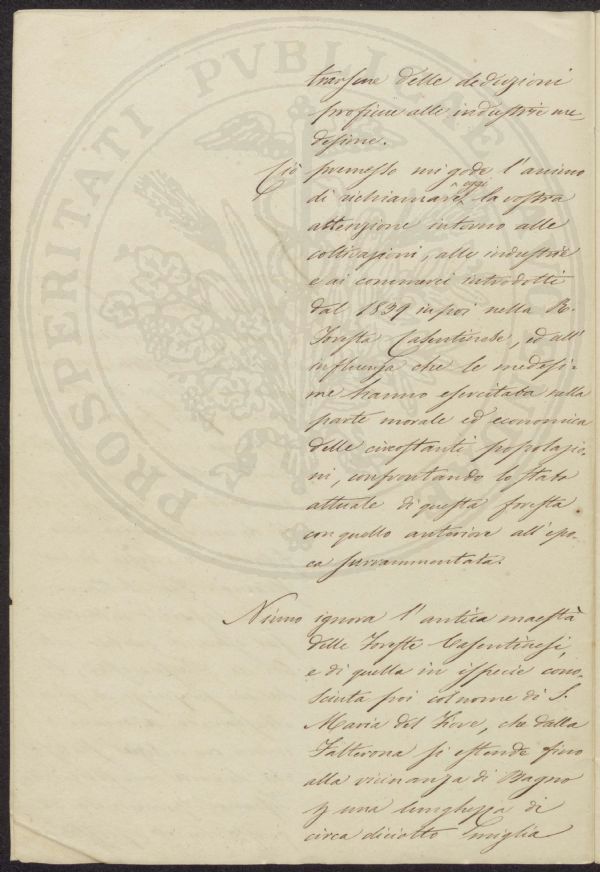 trarsene delle deduzioni
proficue alle industrie me-
desime.
Ciò premesso mi gode l'animo
di richiamare oggi la vostra
attenzione intorno alle
coltivazioni, alle industrie
e ai commerci introdotti
dal 1839 in poi nella R.
Foresta Casentinese, ed all'
influenza che le medesi-
me hanno esercitata nella
parte morale ed economica
delle circostanti popolazio-
ni, confrontando lo stato
attuale di questa foresta
con quello anteriore all'epo-
ca surrammentata.
Niuno ignora l'antica maestà
delle Foreste Casentinesi,
e di quella in ispecie cono-
sciuta poi col nome di S.
Maria del Fiore, che dalla
Falterona si estende fino
alla vicinanza di Bagno
p una lunghezza di
circa diciotto miglia
PROSPERITATI PVBLICAE